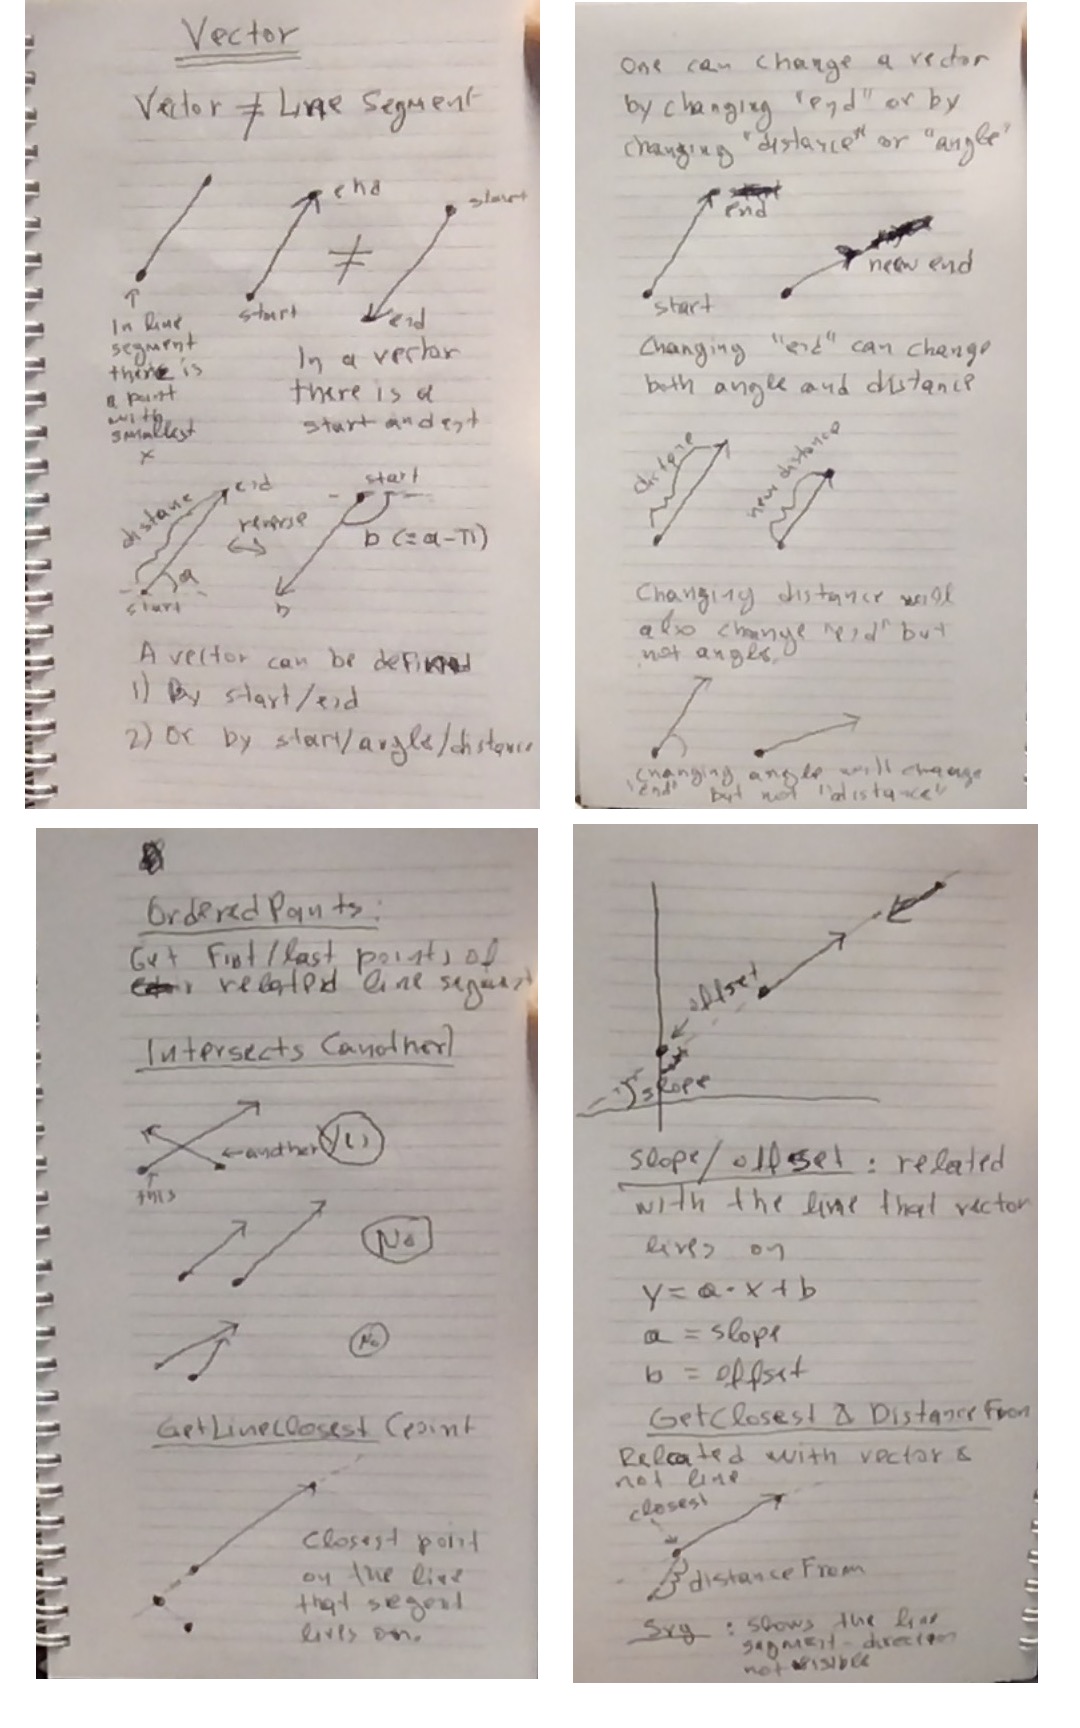 Vector
Vector ≠ Line Segment
end
start
≠
start
end
In line
segment
there is
a point
with
smallest
x
In a vector
there is a
start and end
distance
end
a
start
reverse
start
b (= a - π)
b
A vector can be defined
1) By start/end
2) Or by start/angle/distance
One can change a vector
by changing "end" or by
changing "distance" or "angle"
end
start
new end
Changing "end" can change
both angle and distance
distance
new distance
Changing distance will
also change "end" but
not angle.
changing angle will change
"end" but not "distance"
Ordered Points:
Get First/last points of
related line segment
Intersects (another)
another
Yes
this
No
No
GetLineClosest (point
Closest point
on the line
that segent
lives on.
offset
slope
slope/offset : related
with the line that vector
lives on
y = a·x + b
a = slope
b = offset
GetClosest & DistanceFrom
Releated with vector &
not line
closest
distanceFrom
Svg : shows the line
segment - direction
not visible